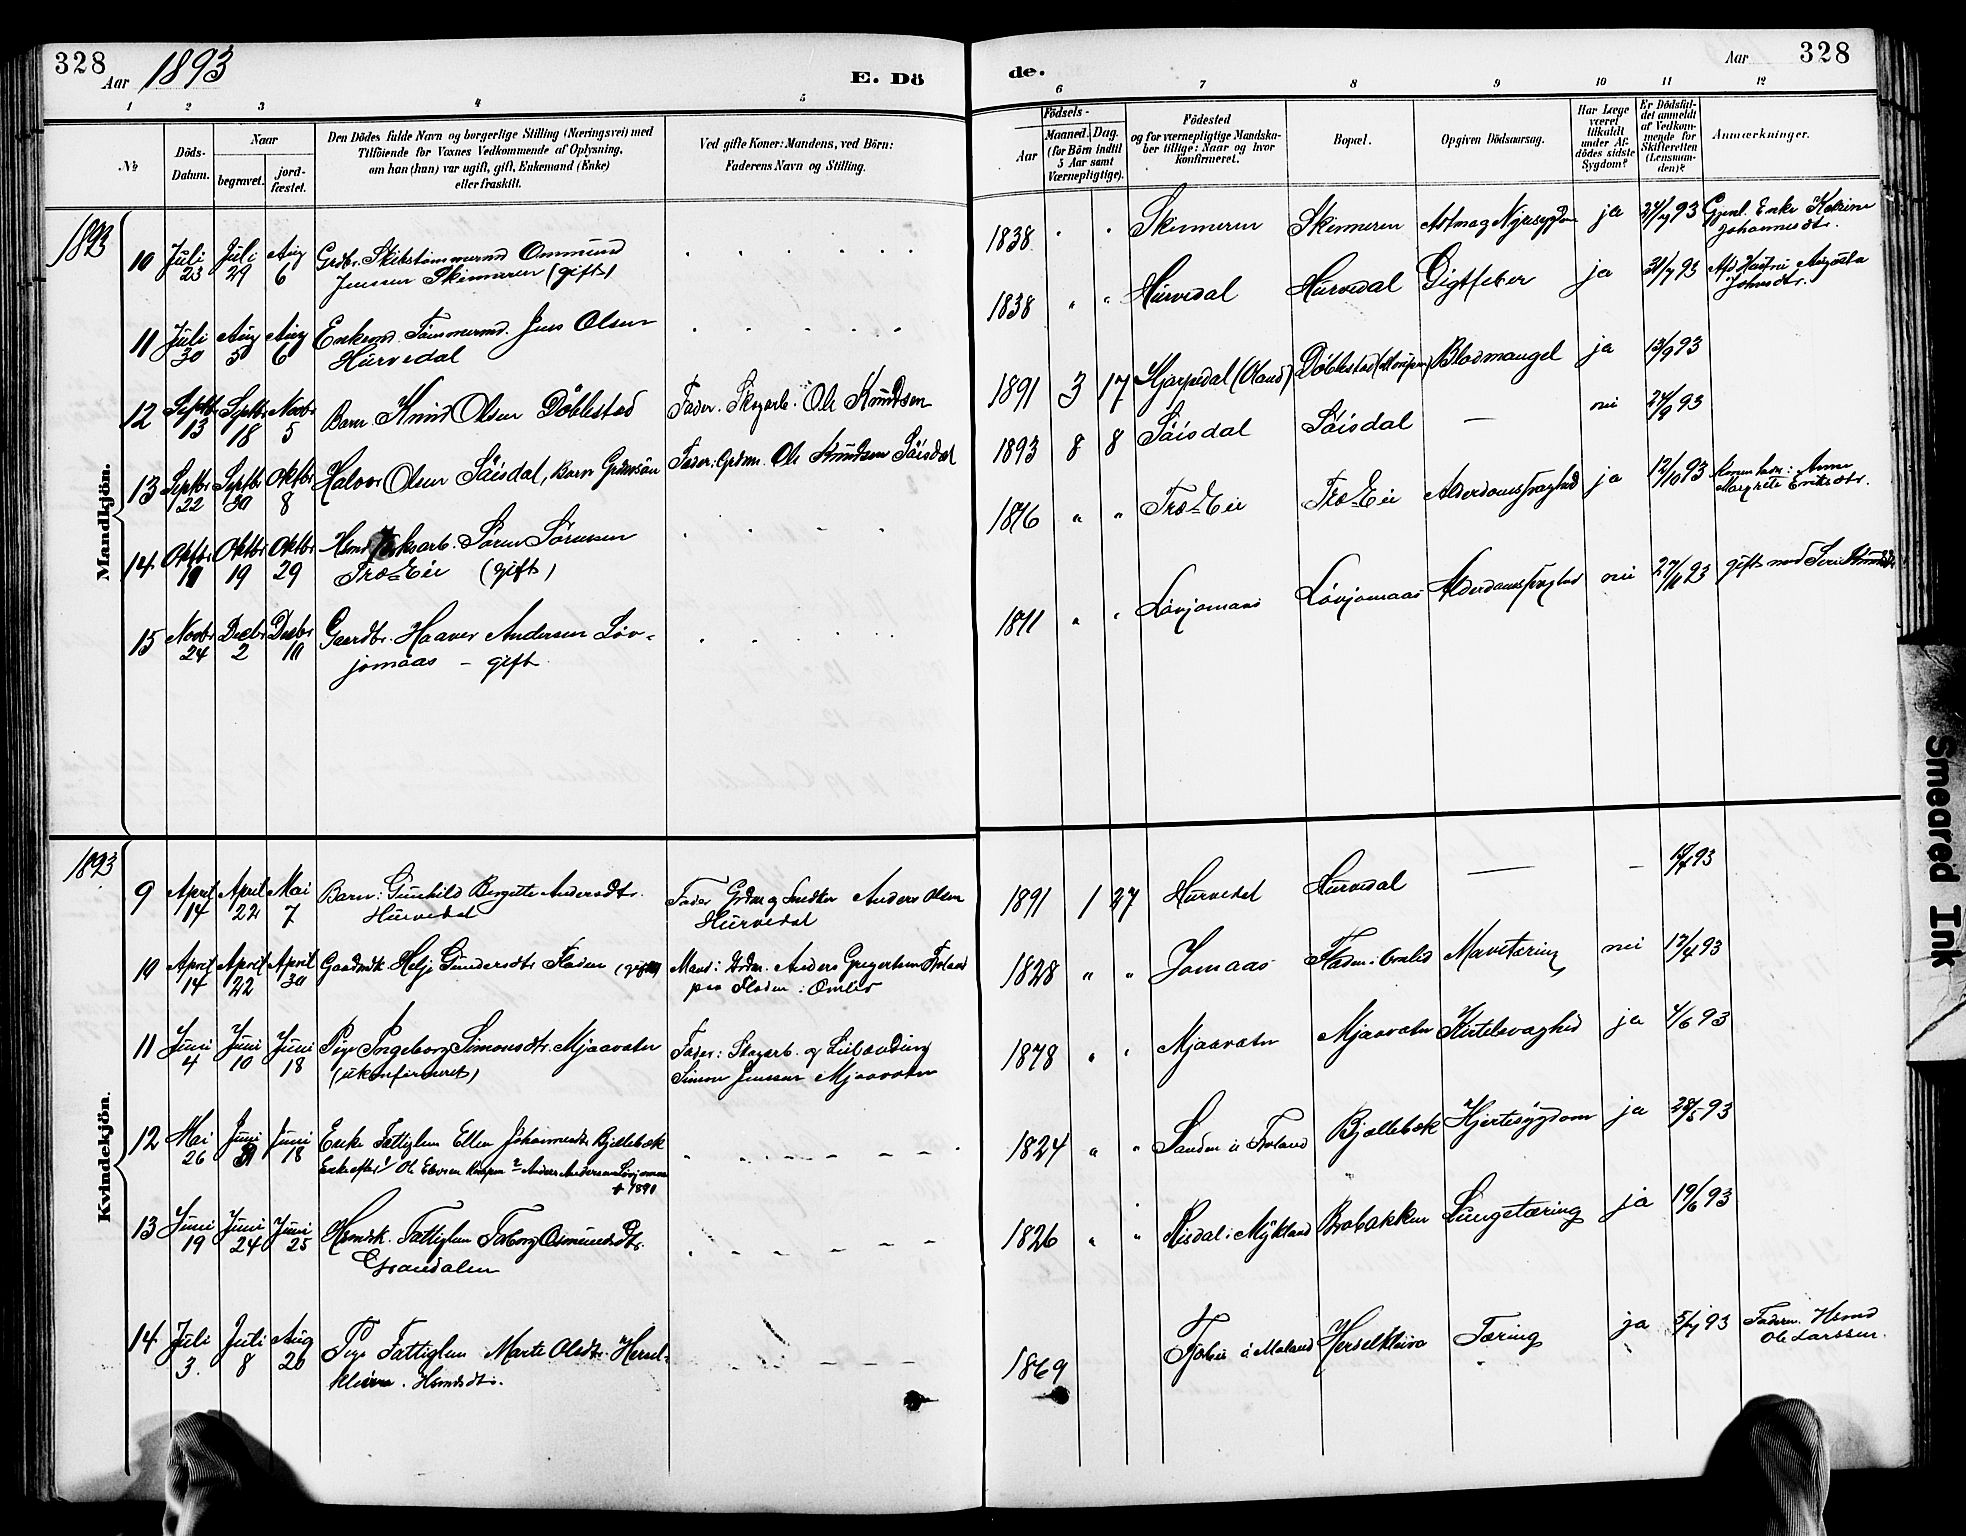 328
Aar 1893
E. Dö
de.
Aar
328
1
2
3
4
5
6
7
8
9
10
11
12
No
Döds-
Datum.
Naar
begravet.
jord-
fæstet.
Den Dödes fulde Navn og borgerlige Stilling (Næringsvei) med
Tilföiende for Voxnes Vedkommende af Oplysning,
om han (hun) var ugift, gift, Enkemand (Enke)
eller fraskilt.
Ved gifte Koner: Mandens, ved Börn:
Faderens Navn og Stilling.
Födsels-
Aar
Maaned.
Dag.
(for Börn indtil
5 Aar samt
Værnepligtige).
Födested
og for værnepligtige Mandska-
ber tillige: Naar og hvor
konfirmeret.
Bopæl.
Opgiven Dödsaarsag.
Har Læge
været
tilkaldt
under Af-
dödes sidste
Sygdom?
Er Dödsfal-
det anmeldt
af Vedkom-
mende for
Skifteretten
(Lensman-
den)?
Anmærkninger.
Mandkjön.
1893
10 Juli 23 Juli 29 Aug 6 Grdbr. Skibstømmermd Ommund
Jensen Skimmeren (gift)
1838 Skimmeren Skimmeren Astma og Nyresygdom ja 24/7 93 Gjenl. Enke Katrine
Johannesdtr.
11 Juli 30 Aug 5 Aug 6 Enkemd. Tømmermd. Jens Olsen
Hurvedal
1838 " " Hurvedal Hurvedal Gigtfeber ja 31/7 93 Afd Hustru Augusta
Johnsdtr.
12 Septbr 13 Septbr 18 Novbr 5 Barn Knud Olsen Döblestad Fader. Skogarb. Ole Knudsen
1891 3 17 Hjarpedal (Oland) Döblestad Blodmangel ja 13/9 93
13 Septbr 22 Septbr 30 Oktbr 8 Halvor Olsen Säisdal, Barn Fader: Grdm. Ole Knudsen Säisdal
1893 8 8 Säisdal Säisdal — nei 24/9 93
14 Oktbr 10 Oktbr 19 Oktbr 29 Søren Sörensen
Træ-Eie (gift)
1816 " " Træ-Eie Træ-Eie Alderdomssvaghed ja 12/10 93 Anne
Margrete Eriksdtr.
15 Novbr 24 Decbr 2 Decbr 10 Gaardbr. Haaver Andersen Löv-
jomaas – gift
1811 " " Lövjomaas Lövjomaas Alderdomssvaghed nei 27/11 93 gift med
Kvindekjön.
1893
9 April 14 April 22 Mai 7 Barn: Gunhild Birgitte Andersdtr.
Hurvedal
Fader Grdm og Smed Anders Olsen
Hurvedal
1891 1 27 Hurvedal Hurvedal — – 93
10 April 14 April 22 April 30 Gaardmdk. Helje Gundersdtr. Fladen (gift) Mand: Grdm. Anders Gregertsen Froland
paa Fladen i Omlid
1828 " " Jomaas Fladen i Omlid Mavetæring nei 17/4 93
11 Juni 4 Juni 10 Juni 18 Pige Ingeborg Simonsdtr. Mjaavatn
(ukonfirmeret)
Fader: Skogarb. og Leilænding
Simon Jensen Mjaavatn
1878 " " Mjaavatn Mjaavatn Kirtelsvaghed ja 4/6 93
12 Mai 26 Juni Juni 18 Enke Fattiglem Ellen Johannesdtr Bjellebæk
Enke efter 1 Ole 2 Anders Andersen Lövjomaas
+ 1890
1824 " " Sanden i Froland Bjællebæk Hjertesygdom ja 28/5 93
13 Juni 19 Juni 24 Juni 25 Hsmdsk. Fattiglem Taborg Osmundsdtr.
Grandalen
1826 " " Risdal i Mykland Brobakken Lungetæring ja 19/6 93
14 Juli 3. Juli 8 Aug 20 Pige Fattiglem Marte Olsdtr. Hersel-
kleiva. Hsmdsdtr.
1869 i Moland Herselkleiva Tæring ja 5/7 93 Faderen Hsmd
Ole Larssen.
Smeared Ink